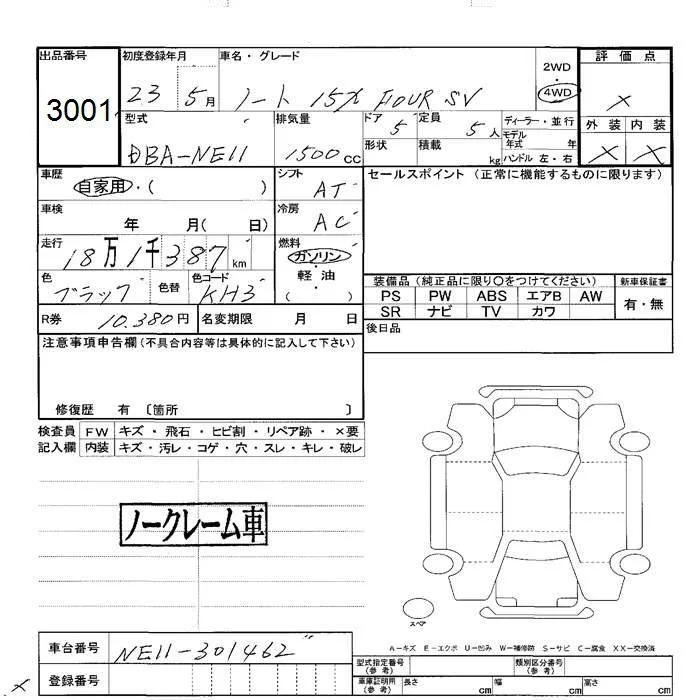 出品番号 初度登録年月 車名・グレード 2WD 評価点
3001 23 5月 ノート 15X FOUR SV 4WD ×
型式 排気量 ドア 定員 ディーラー・並行 外装 内装
DBA-NE11 1500cc 5 5人 モデル年式 年 × ×
形状 積載 kg ハンドル 左・右
車歴 シフト セールスポイント (正常に機能するものに限ります)
自家用・( ) AT
車検 冷房
年 月( 日) AC
走行 燃料
18万1千387km ガソリン
軽・油
( )
色 色替 色コード 装備品 (純正品に限り○をつけてください) 新車保証書
ブラック KH3 PS PW ABS エアB AW 有・無
SR ナビ TV カワ
R券 10,380円 名変期限 月 日 後日品
注意事項申告欄(不具合内容等は具体的に記入して下さい)
修復歴 有 〔箇所 〕
検査員 FW キズ・飛石・ヒビ割・リペア跡・×要
記入欄 内装 キズ・汚レ・コゲ・穴・スレ・キレ・破レ
ノークレーム車
スペア
A-キズ E-エクボ U-凹み W-補修跡 S-サビ C-腐食 XX-交換済
車台番号 NE11-301462
型式指定番号(参考) 類別区分番号(参考)
登録番号
車庫証明用(参考) 長さ cm 幅 cm 高さ cm
×